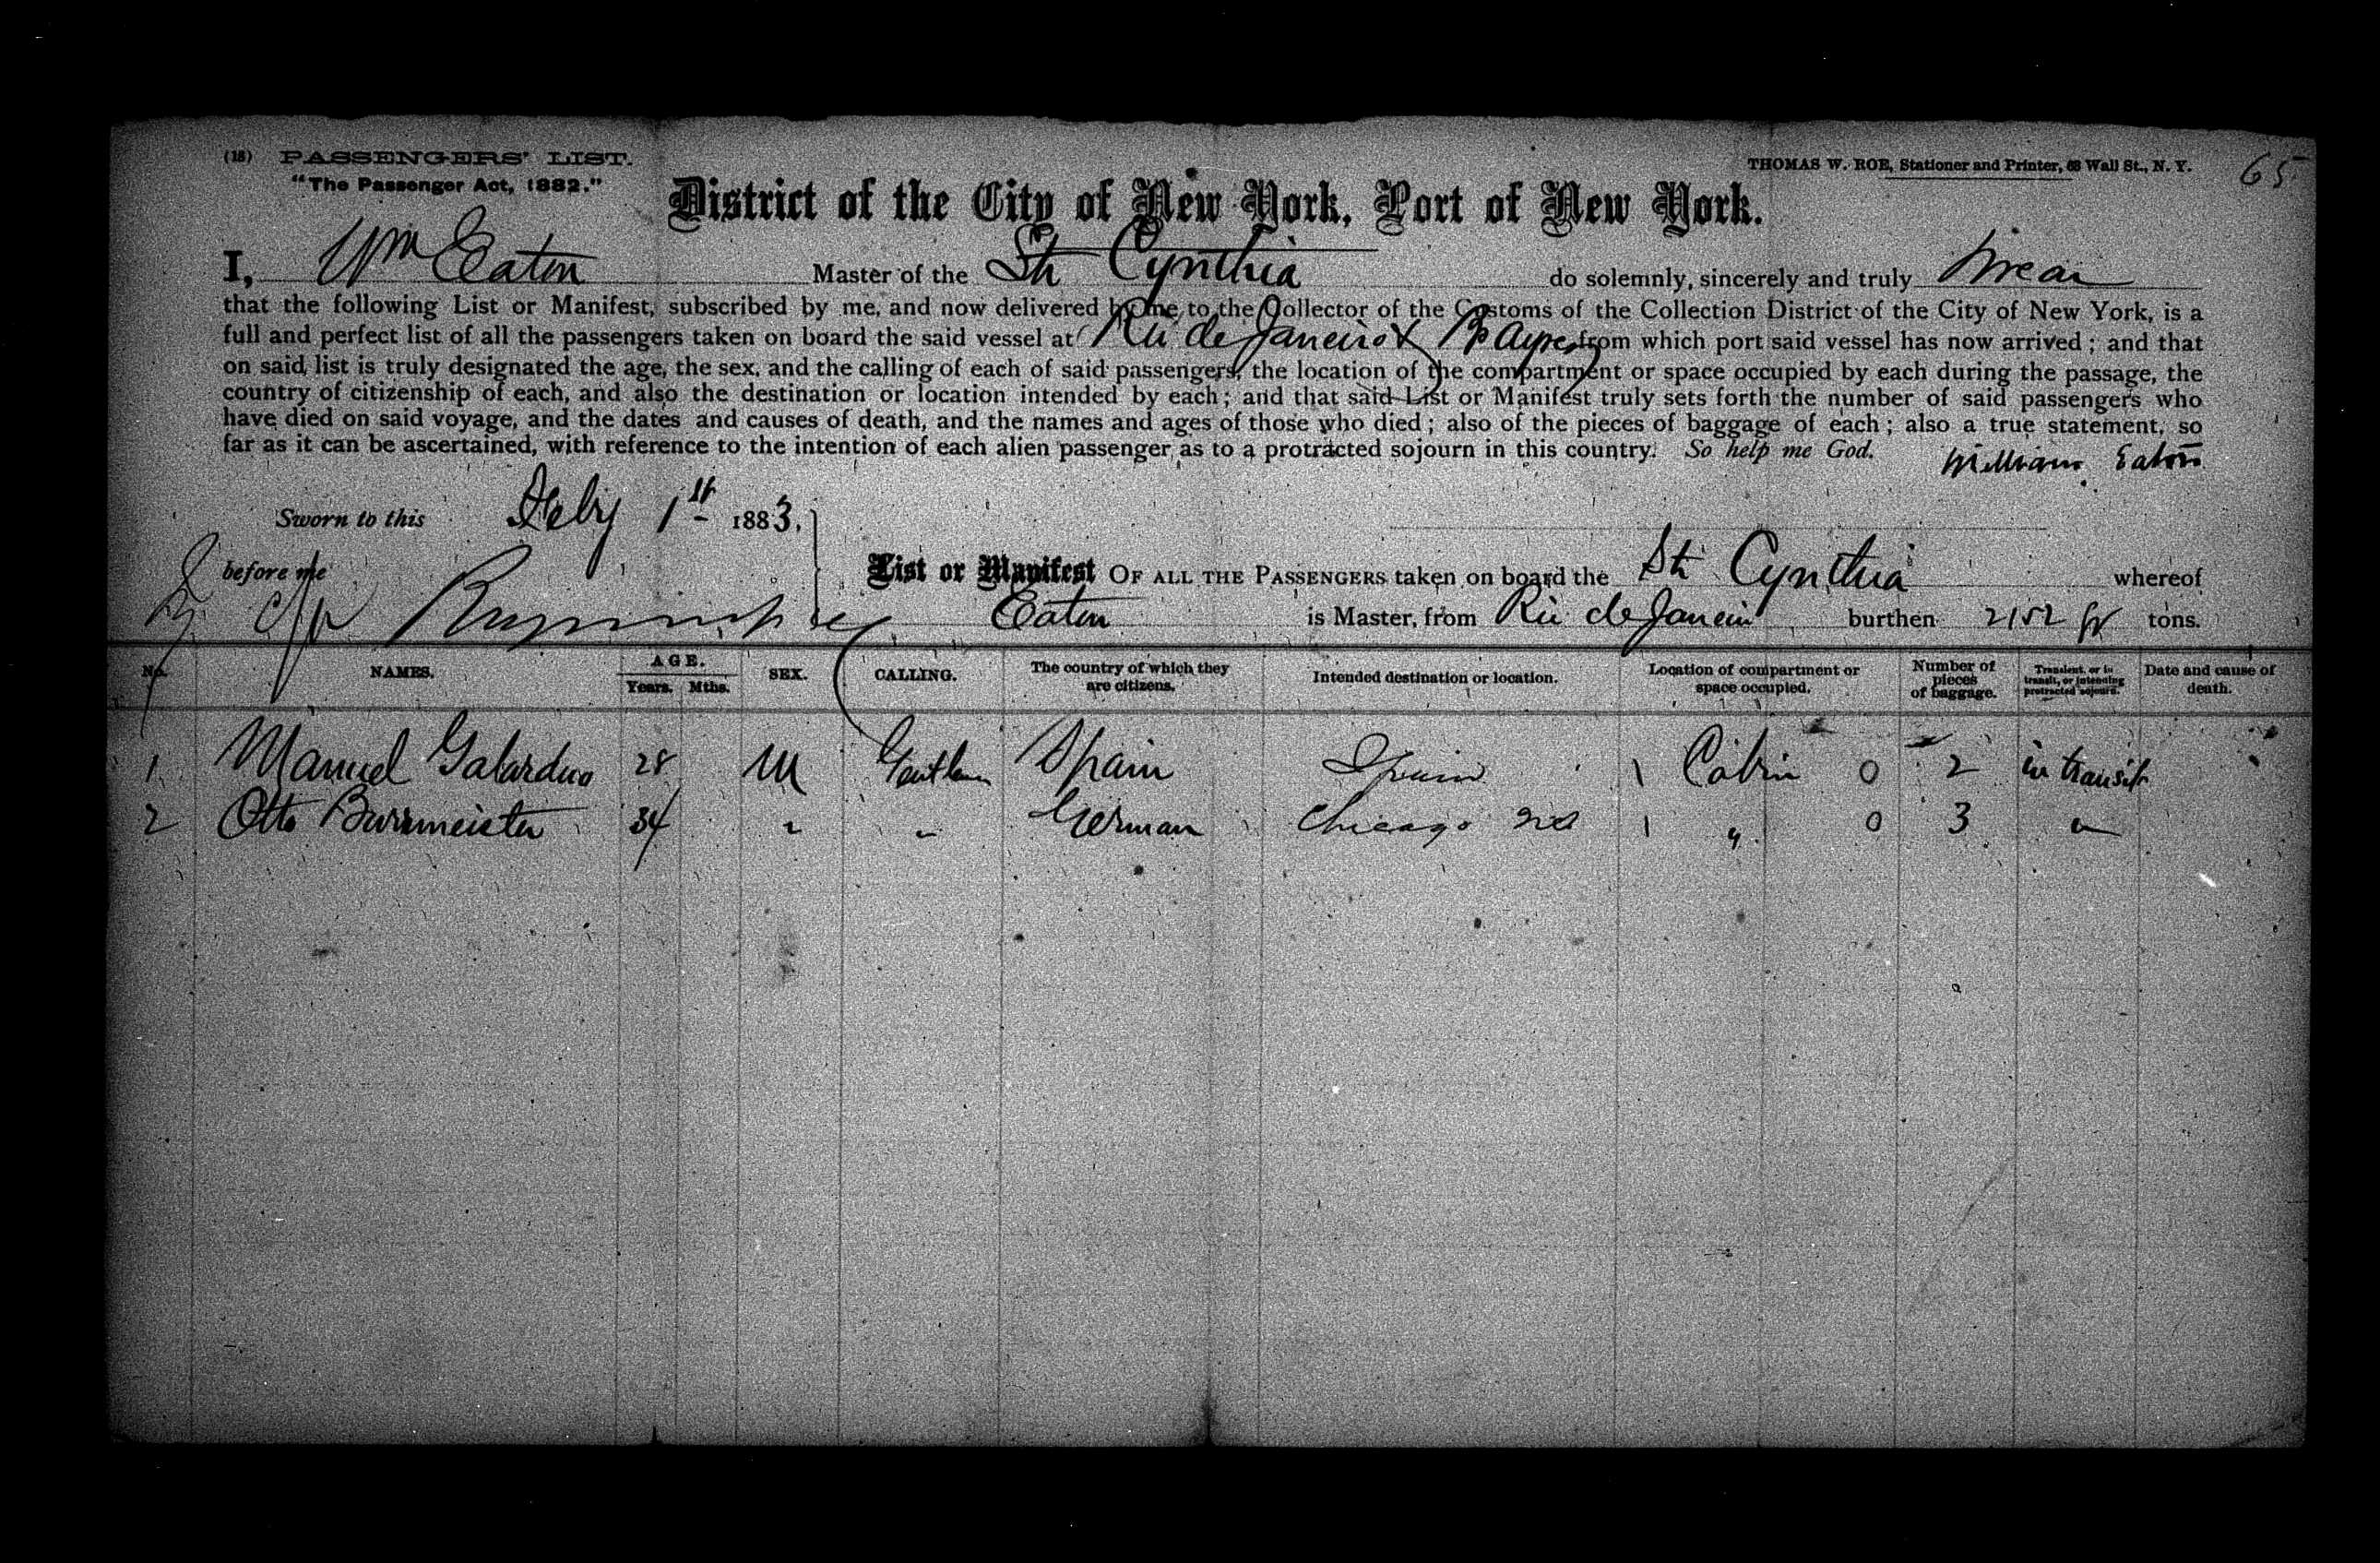 (18) PASSENGERS' LIST.
"The Passenger Act, 1882."
THOMAS W. ROE, Stationer and Printer, 68 Wall St., N. Y.
65
District of the City of New York, Port of New York.
I, Wm Eaton Master of the Str Cynthia do solemnly, sincerely and truly swear
that the following List or Manifest, subscribed by me, and now delivered by me to the Collector of the Customs of the Collection District of the City of New York, is a
full and perfect list of all the passengers taken on board the said vessel at Rio de Janeiro & Bs Ayres from which port said vessel has now arrived; and that
on said list is truly designated the age, the sex, and the calling of each of said passengers, the location of the compartment or space occupied by each during the passage, the
country of citizenship of each, and also the destination or location intended by each; and that said List or Manifest truly sets forth the number of said passengers who
have died on said voyage, and the dates and causes of death, and the names and ages of those who died; also of the pieces of baggage of each; also a true statement, so
far as it can be ascertained, with reference to the intention of each alien passenger as to a protracted sojourn in this country. So help me God.
William Eaton
Sworn to this Feby 1st 1883.
before me
List or Manifest OF ALL THE PASSENGERS taken on board the Str Cynthia whereof
Eaton is Master, from Rio de Janeiro burthen 2152 tons.
No. NAMES. AGE. Years. Mths. SEX. CALLING. The country of which they are citizens. Intended destination or location. Location of compartment or space occupied. Number of pieces of baggage. Transient, or in transit, or intending protracted sojourn. Date and cause of death.
1 Manuel 28 M Gentleman Spain Spain 1 Cabin 0 2 in transit
2 Otto Burmeister 34 " " German Chicago 1 " 0 3 "